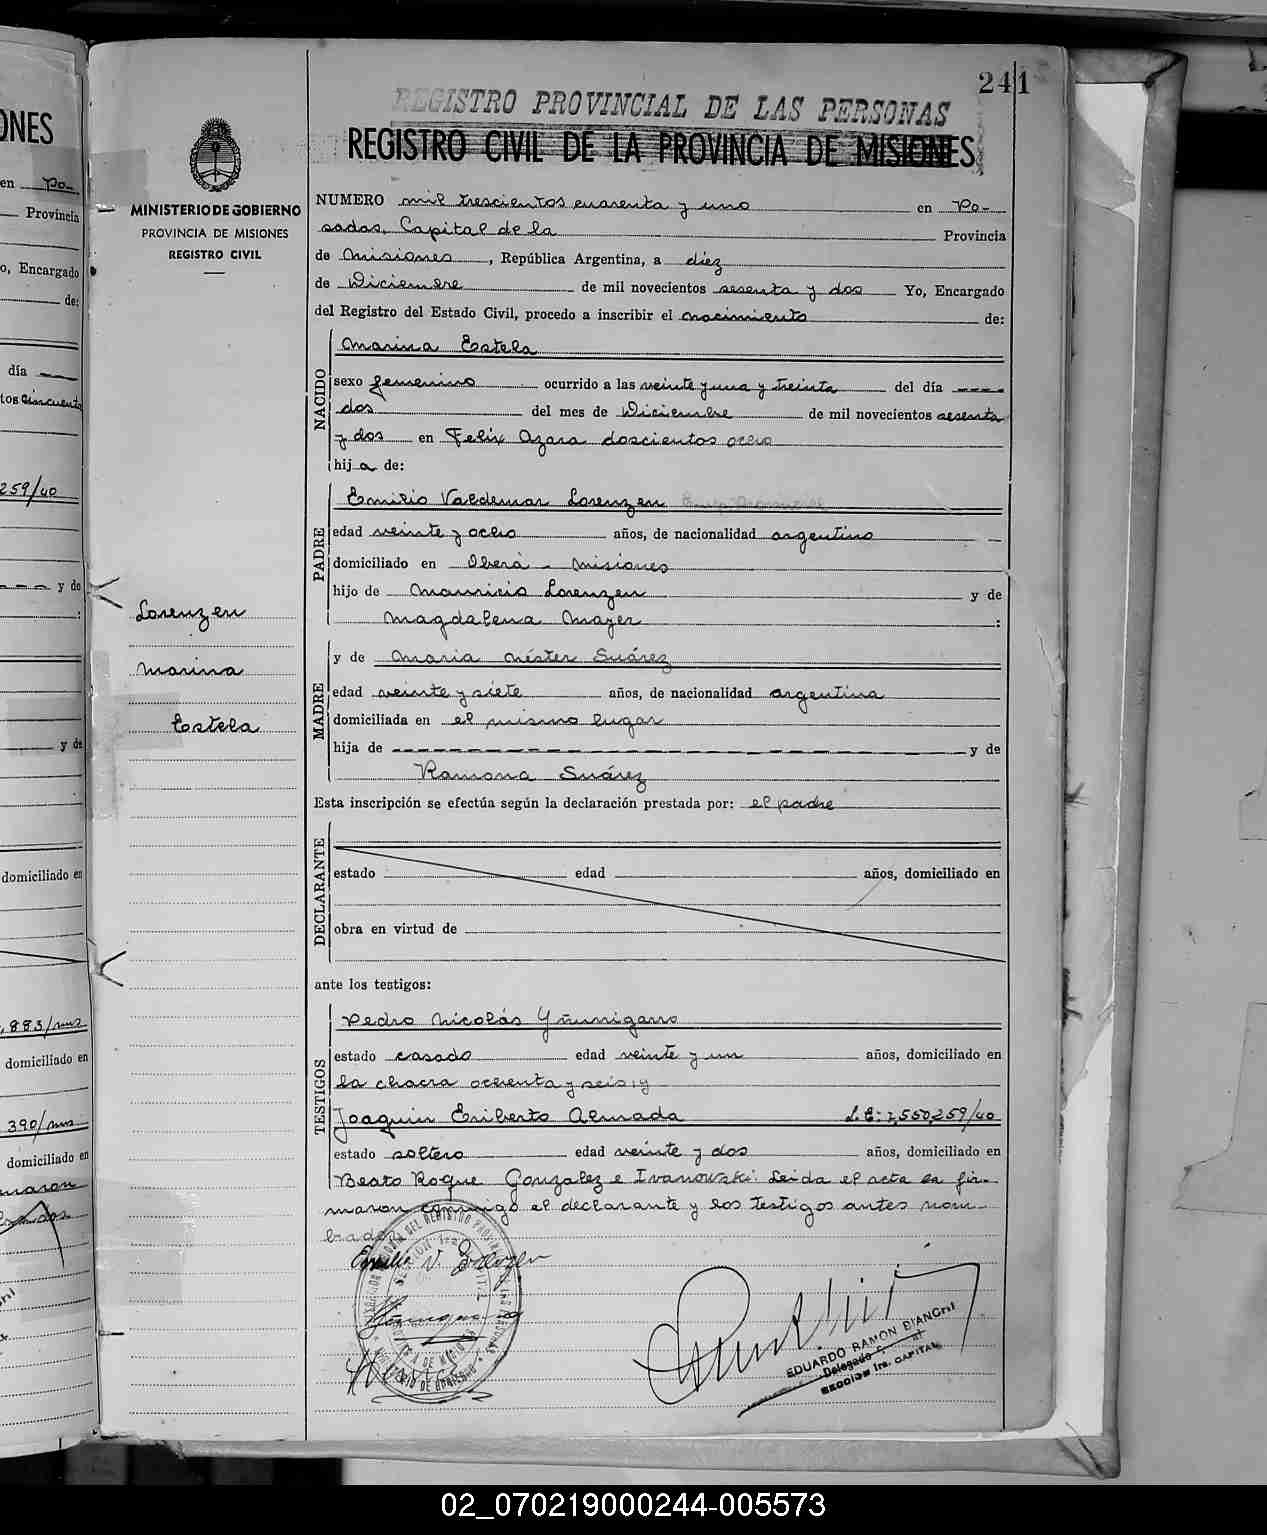 241
REGISTRO PROVINCIAL DE LAS PERSONAS
REGISTRO CIVIL DE LA PROVINCIA DE MISIONES
MINISTERIO DE GOBIERNO
PROVINCIA DE MISIONES
REGISTRO CIVIL
NUMERO mil trescientos cuarenta y uno en Po-
sadas, Capital de la Provincia
de Misiones, República Argentina, a diez
de Diciembre de mil novecientos sesenta y dos Yo, Encargado
del Registro del Estado Civil, procedo a inscribir el nacimiento de:
NACIDO
Marina Estela
sexo femenino ocurrido a las veinte y una y treinta del día ----
dos del mes de Diciembre de mil novecientos sesenta
y dos en Felix Azara doscientos ocho
hija de:
PADRE
Emilio Valdemar Lorenzen
edad veinte y ocho años, de nacionalidad argentino
domiciliado en Oberá - Misiones
hijo de Mauricio Lorenzen y de
Magdalena Mayer :
Lorenzen
Marina
Estela
MADRE
y de Maria Néster Suárez
edad veinte y siete años, de nacionalidad argentina
domiciliada en el mismo lugar
hija de ---------------- y de
Ramona Suárez
Esta inscripción se efectúa según la declaración prestada por: el padre
DECLARANTE
estado edad años, domiciliado en
obra en virtud de
ante los testigos:
TESTIGOS
Pedro Nicolás Yñunigarro
estado casado edad veinte y un años, domiciliado en
la chacra ochenta y seis, y
Joaquin Eriberto Almada L.E: 7,550,259/40
estado soltero edad veinte y dos años, domiciliado en
Beato Roque Gonzalez e Ivanowski. Leida el acta la fir-
maron conmigo el declarante y los testigos antes nom-
brados
EDUARDO RAMON BIANCHI
Delegado
SECCION 1ra. CAPITAL
ONES
en Po-
Provincia
o, Encargado
de:
día
tos cincuenta
259/40
y de
:
y de
domiciliado en
,883/mns
domiciliado en
390/mns
domiciliado en
maron
02_070219000244-005573